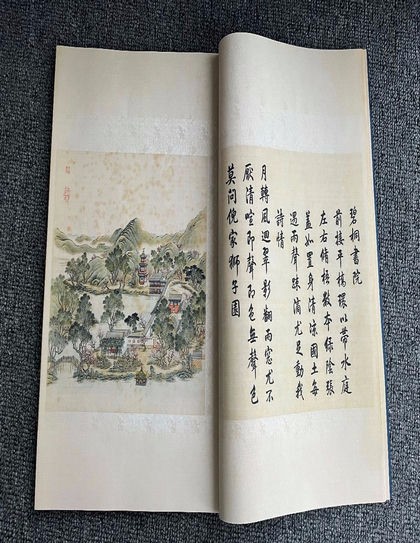 碧桐書院
前接平橋環以帶水庭
左右脩梧數本綠陰張
蓋如置身清涼國土每
遇雨聲疎滴尤足動我
詩情
月轉風迴翠影翻雨窓尤不
厭清喧即聲即色無聲色
莫問倪家獅子園